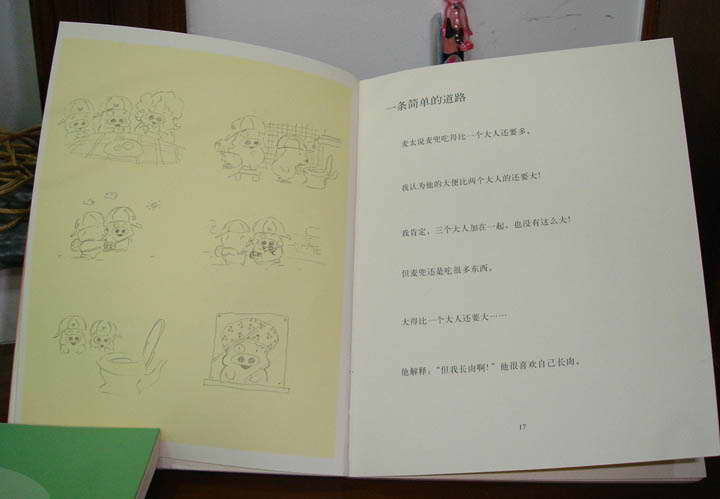 一条简单的道路
麦太说麦兜吃得比一个大人还要多。
我认为他的大便比两个大人的还要大！
我肯定，三个大人加在一起，也没有这么大！
但麦兜还是吃很多东西。
大得比一个大人还要大……
他解释：“但我长肉啊！”他很喜欢自己长肉。
17